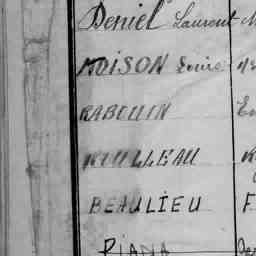 Deniel Laurent
MOISON Louise
RABOUIN
ROULLEAU
BEAULIEU F
PIANA